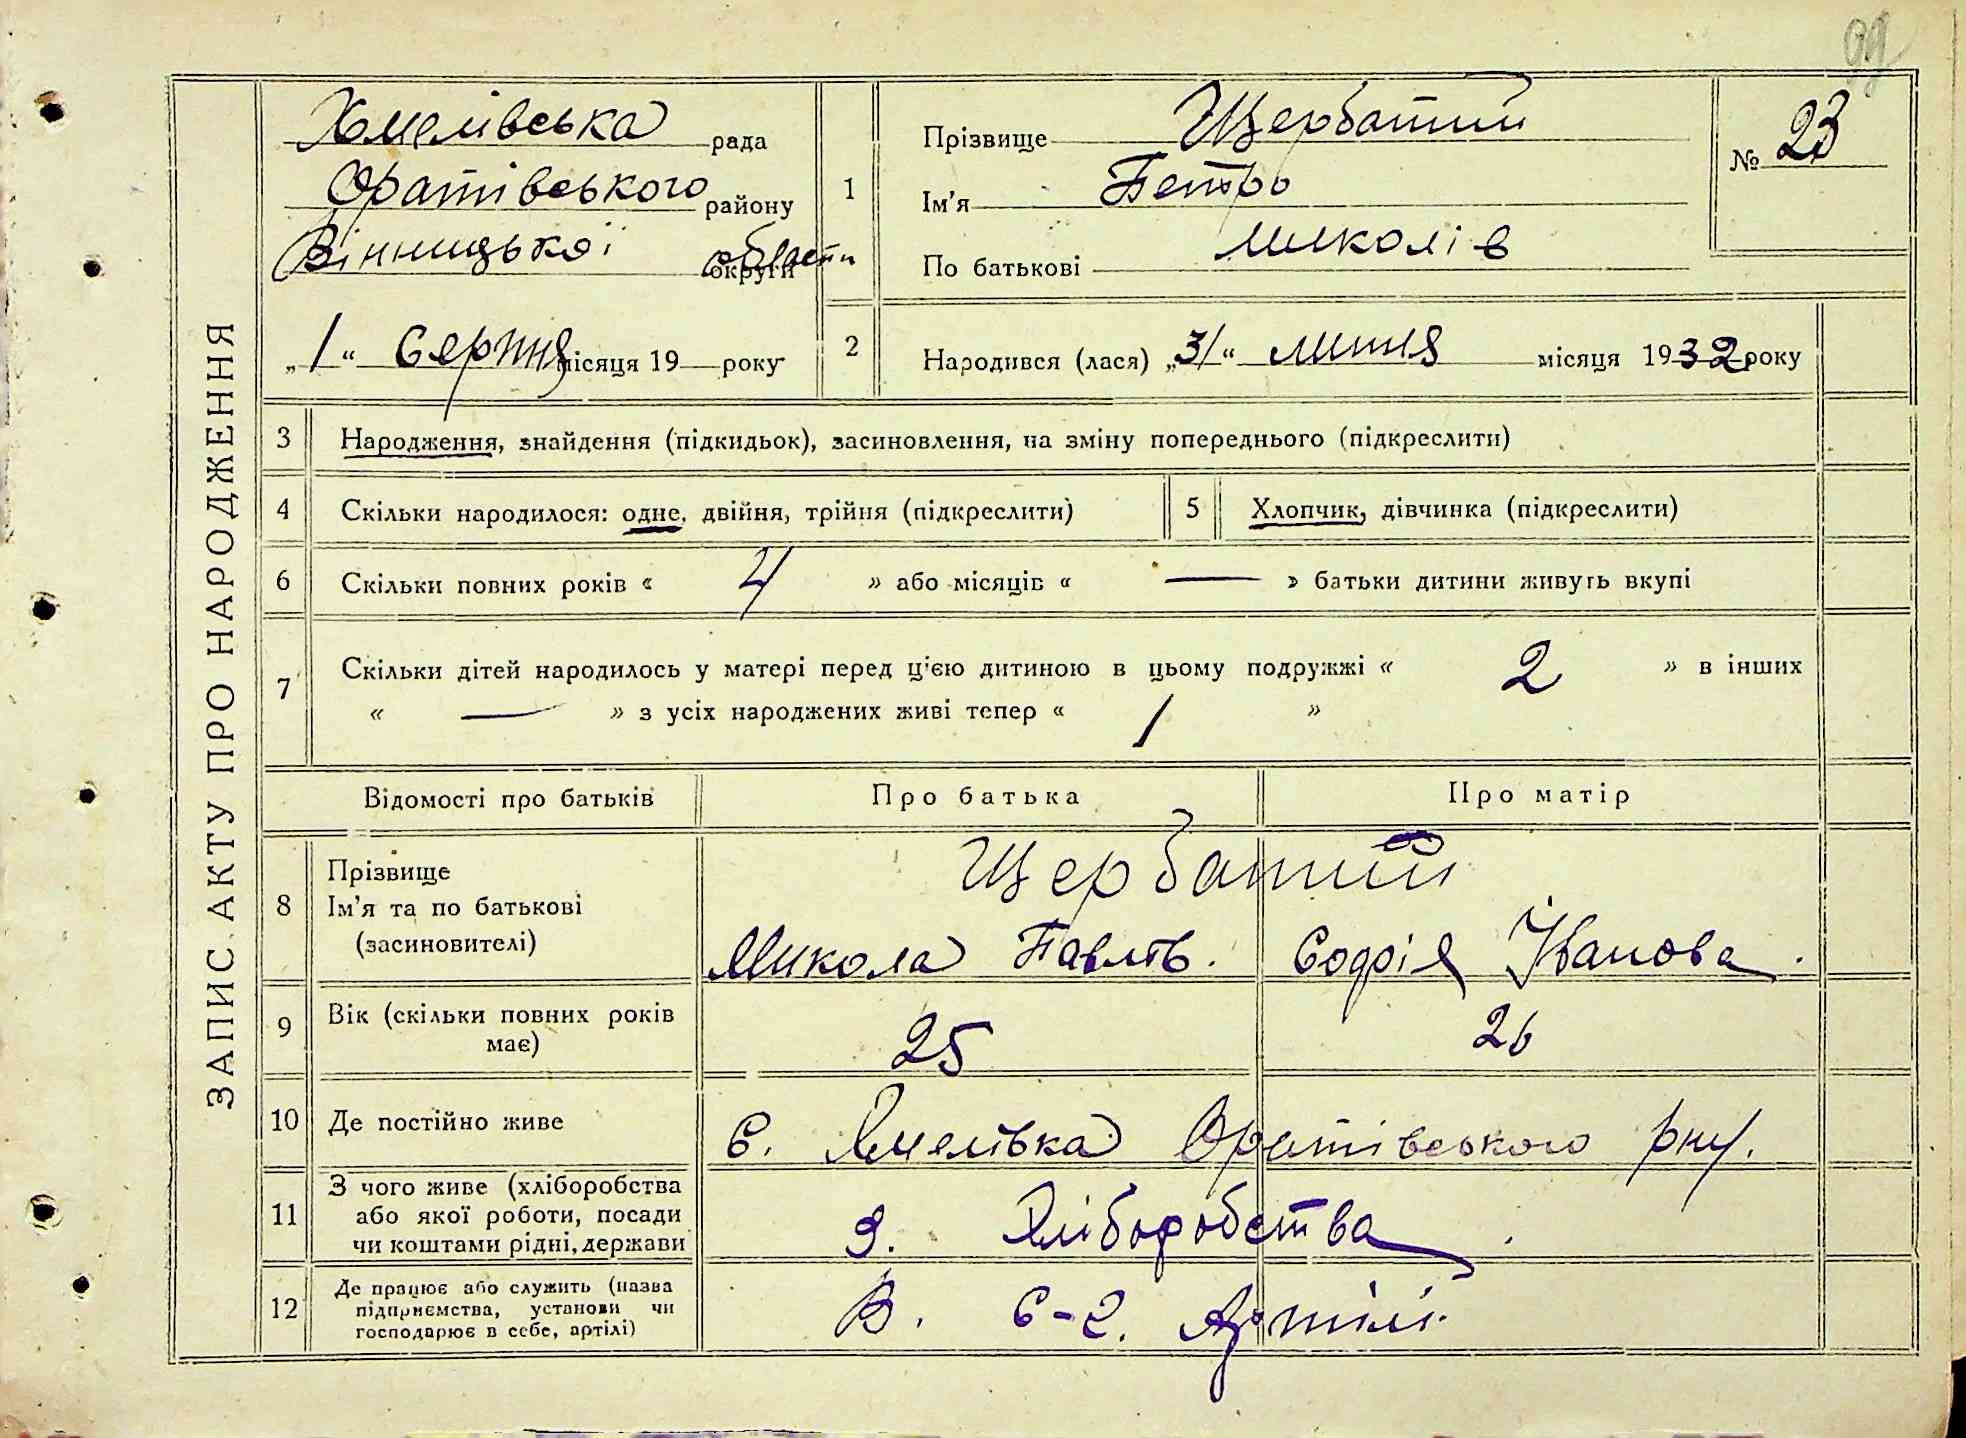 99
ЗАПИС АКТУ ПРО НАРОДЖЕННЯ
Хмелівська рада
Оратівського району
Вінницької округи области
„1“ Серпня місяця 19 року
1
Прізвище Щербатий
Ім'я Петро
По батькові Миколів
№ 23
2
Народився (лася) „31“ липня місяця 1932 року
3 Народження, знайдення (підкидьок), засиновлення, на зміну попереднього (підкреслити)
4 Скільки народилося: одне, двійня, трійня (підкреслити)
5 Хлопчик, дівчинка (підкреслити)
6 Скільки повних років « 4 » або місяців « — » батьки дитини живуть вкупі
7 Скільки дітей народилось у матері перед ц'єю дитиною в цьому подружжі « 2 » в інших
« — » з усіх народжених живі тепер « 1 »
Відомості про батьків Про батька Про матір
8 Прізвище
Ім'я та по батькові
(засиновителі)
Щербатий
Микола Павлів. Софія Іванова.
9 Вік (скільки повних років
має)
25 26
10 Де постійно живе С. Хмелівка Оратівського рну.
11 З чого живе (хліборобства
або якої роботи, посади
чи коштами рідні, держави
З. Хліборобства
12 Де працює або служить (назва
підприємства, установи чи
господарює в себе, артілі)
В. С-г. Артілі